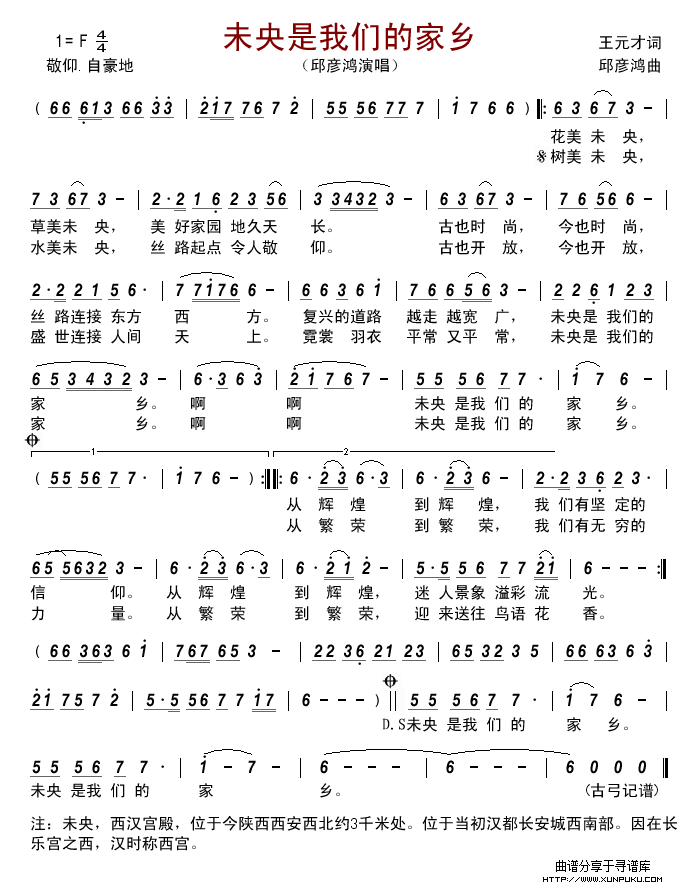 未央是我们的家乡
1= F 4/4
王元才词
敬仰.自豪地
（邱彦鸿演唱）
邱彦鸿曲
( 66 613 66 33 | 2176 76 7 2 | 55 56 77 7 - | 1 7 6 6 ) ‖: 6 3 67 3 - |
花美 未 央，
树美 未 央，
7 3 67 3 - | 2·2 1 6 2 3 56 | 3 3432 3 - | 6 3 67 3 - | 7 6 56 6 - |
草美未 央， 美 好家园 地久天 长。 古也时 尚， 今也时 尚，
水美未 央， 丝 路起点 令人敬 仰。 古也开 放， 今也开 放，
2·2 2 1 5 6· | 7 7176 6 - | 6 6 3 6 6 1 | 7 6 6 56 3 - | 2 2 6 1 2 3 |
丝 路连接 东方 西 方。 复兴的道路 越走 越宽 广， 未央是 我们的
盛 世连接 人间 天 上。 霓裳 羽衣 平常 又平 常， 未央是 我们的
6 5 3 4 3 2 3 - | 6·3 6 3 | 2 1 7 6 7 - | 55 56 77· | 1 7 6 - |
家 乡。 啊 啊 未央 是我 们 的 家 乡。
家 乡。 啊 啊 未央 是我 们 的 家 乡。
1 2
( 55 56 7 7· | 1 7 6 - ) :‖: 6· 23 6·3 | 6· 23 6 - | 2·2 3 6 2 3· |
从 辉 煌 到 辉 煌， 我 们有坚 定的
从 繁 荣 到 繁 荣， 我 们有无 穷的
65 5632 3 - | 6· 23 6·3 | 6· 21 2 - | 5·5 56 77 21 | 6 - - - :‖
信 仰。 从 辉 煌 到 辉 煌， 迷 人景象 溢彩 流 光。
力 量。 从 繁 荣 到 繁 荣， 迎 来送往 鸟语 花 香。
( 66 363 6 1 | 767 65 3 - | 22 36 21 23 | 65 32 35 | 66 63 6 3 |
21 75 7 2 | 5·5 56 77 17 | 6 - - - ) ‖ 55 56 7 7· | 1 7 6 - |
D.S未央 是我 们 的 家 乡。
55 56 7 7· | 1 - 7 - | 6 - - - | 6 - - - | 6 0 0 0 ‖
未央 是我 们 的 家 乡。 (古弓记谱)
注：未央，西汉宫殿，位于今陕西西安西北约3千米处。位于当初汉都长安城西南部。因在长
乐宫之西，汉时称西宫。
曲谱分享于寻谱库
WWW.XUNPUKU.COM